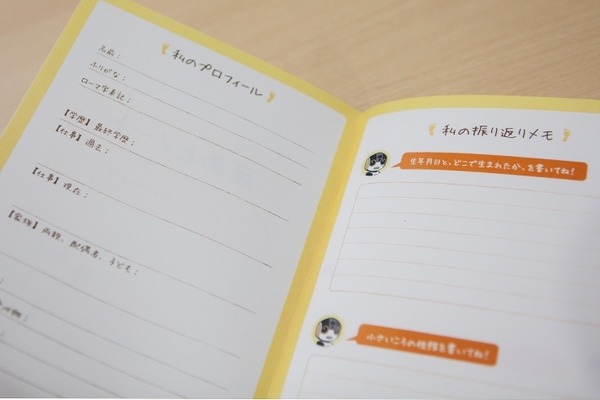 私のプロフィール
名前：
ふりがな：
ローマ字表記：
【学歴】最終学歴：
【仕事】過去：
【仕事】現在：
【家族】両親、配偶者、子ども：
私の振り返りメモ
生年月日と、どこで生まれたか、を書いてね！
小さいころの性格を書いてね！